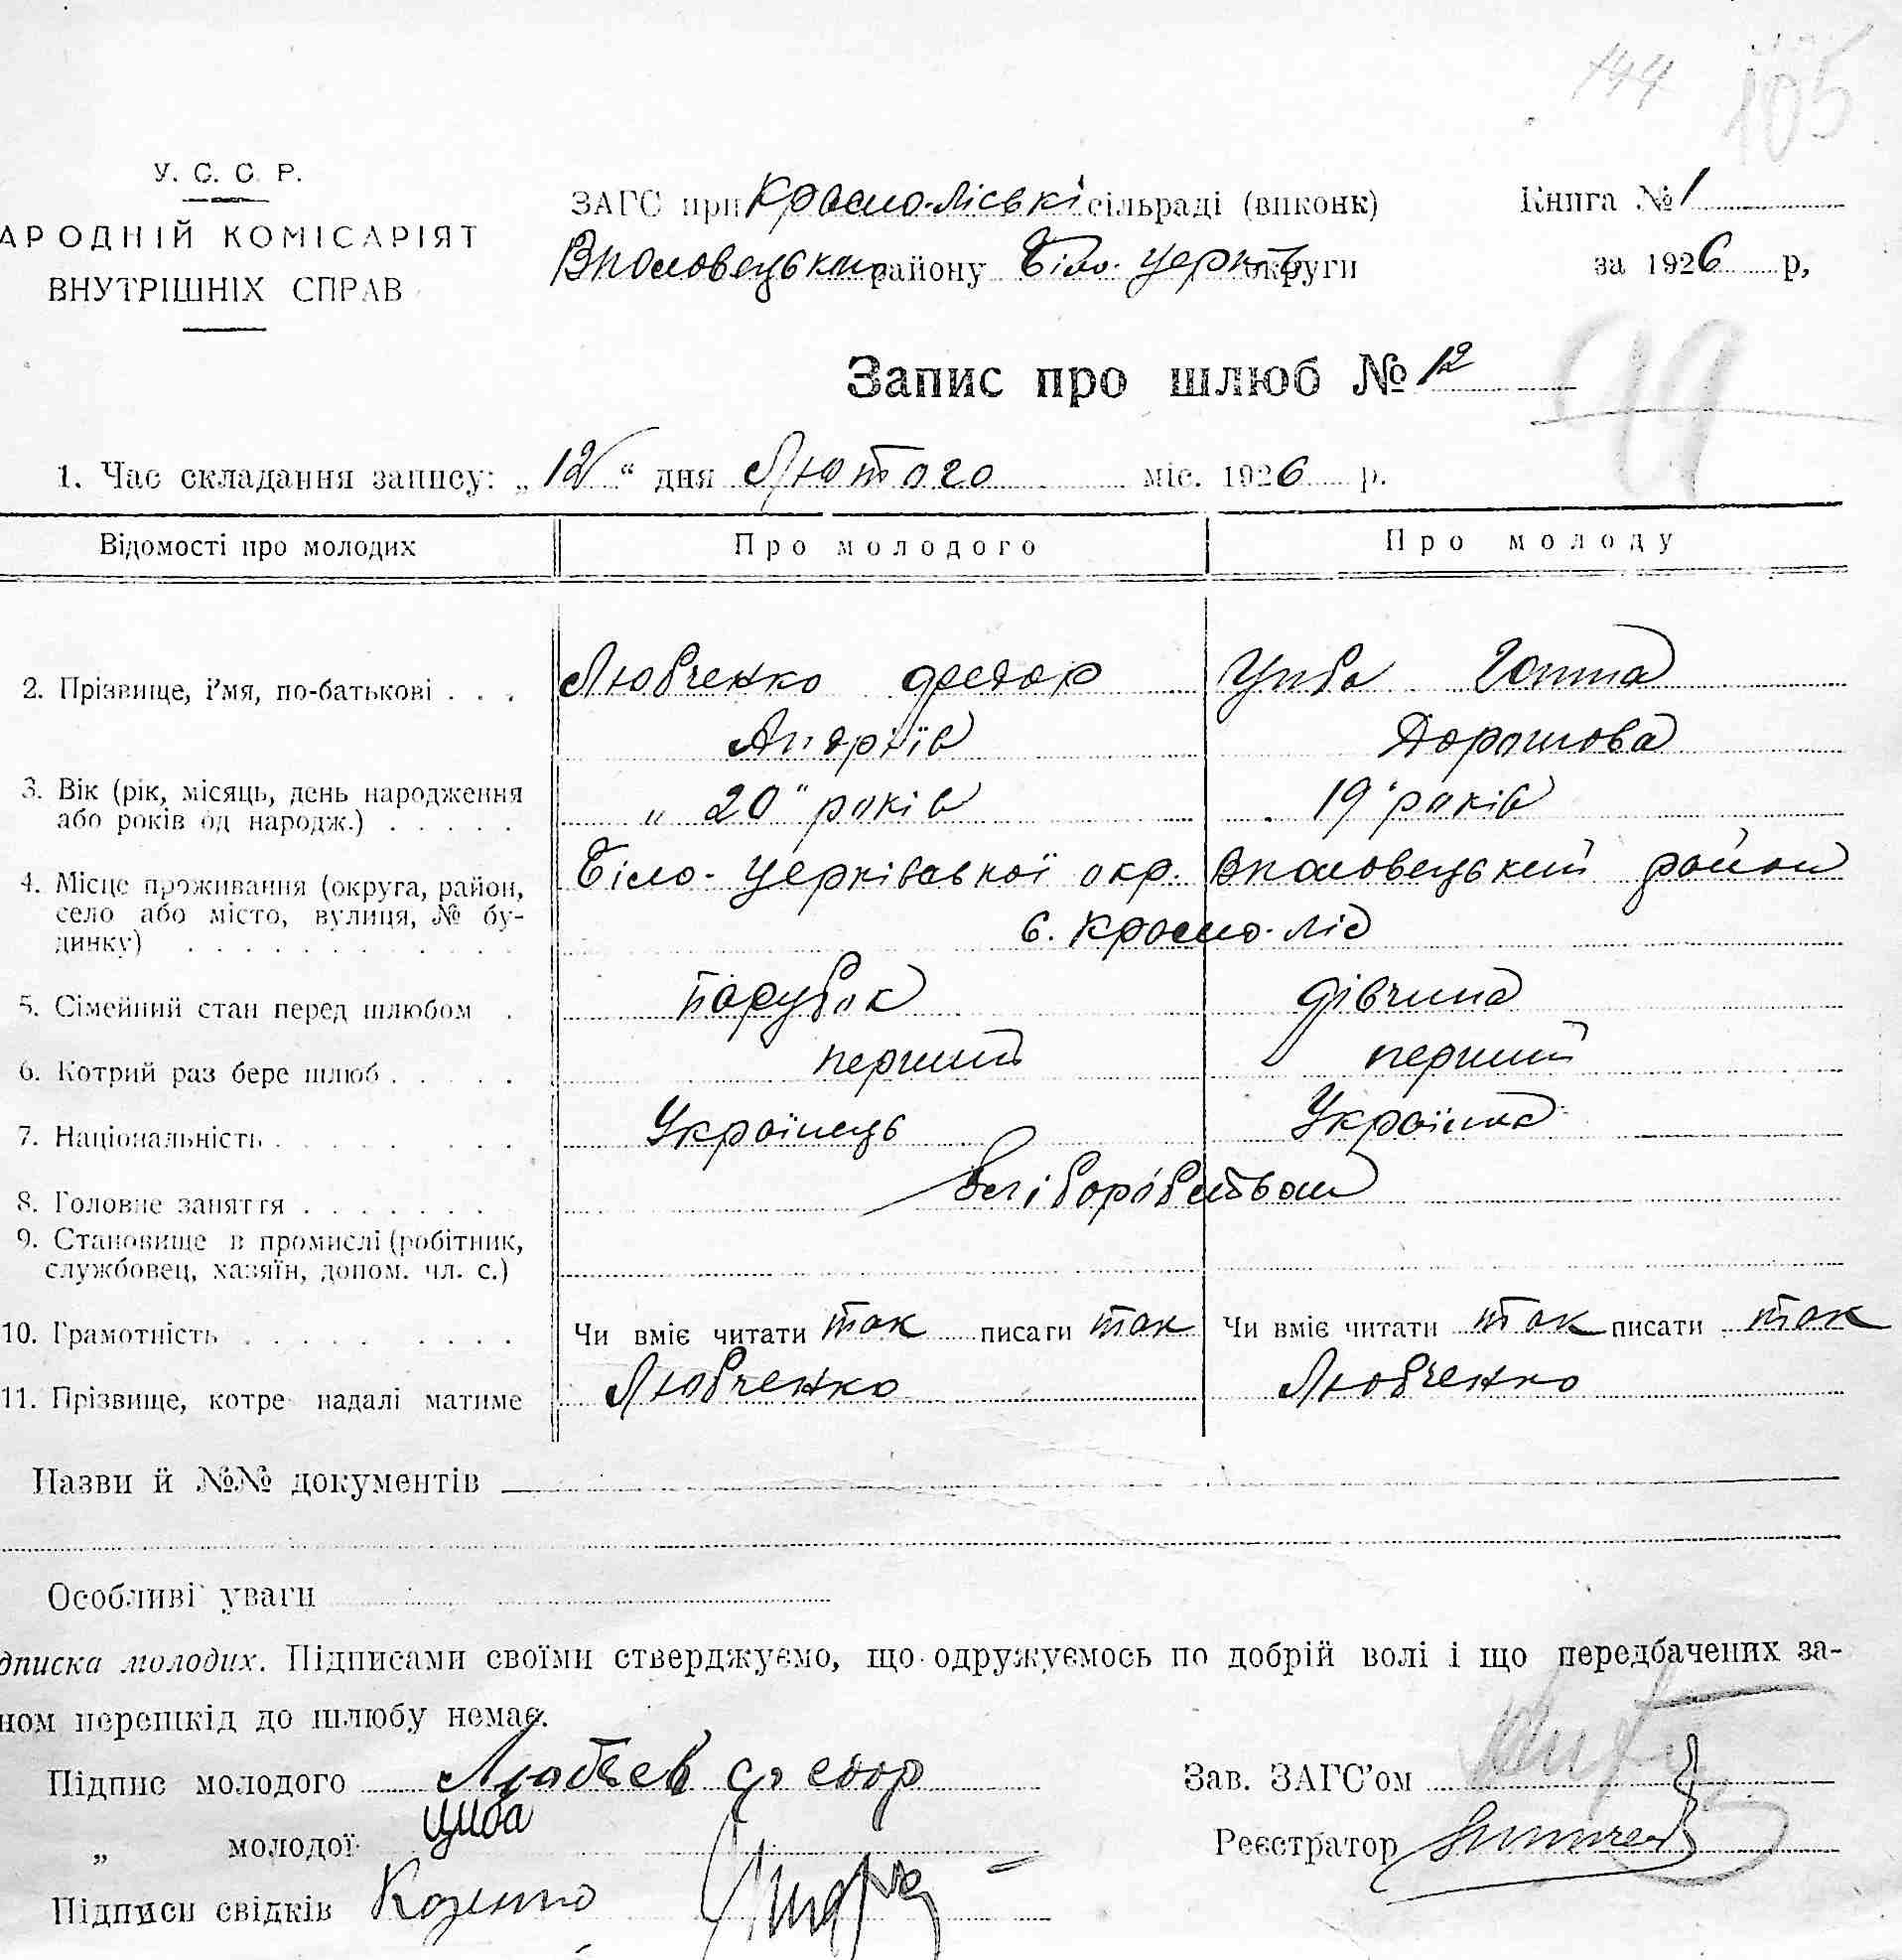 144 105
У. С. С. Р.
АРОДНІЙ КОМІСАРІЯТ
ВНУТРІШНІХ СПРАВ
ЗАГС при Красно-ліські сільраді (виконк) Книга № 1
району Біло-церків округи за 1926 р,
Запис про шлюб № 12
1. Час складання запису: „12“ дня Лютого міс. 1926 р.
Відомості про молодих Про молодого Про молоду
2. Прізвище, і'мя, по-батькові . . . Любченко Федор Циба Ганна
Андріїв Дорошова
3. Вік (рік, місяць, день народження „20“ років 19 років
або років од народж.) . . . . .
4. Місце проживання (округа, район, Біло-церківської окр. район
село або місто, вулиця, № бу- с. Красно-ліс
динку) . . . . . . . . . .
5. Сімейний стан перед шлюбом . парубок дівчина
6. Котрий раз бере шлюб . . . . . перший перший
7. Національність . . . . . . . Українець Українка
8. Головне заняття . . . . . . . Хліборобством
9. Становище в промислі (робітник,
службовец, хазяїн, допом. чл. с.)
10. Грамотність . . . . . . . . . Чи вміє читати так писати так Чи вміє читати так писати так
11. Прізвище, котре надалі матиме Любченко Любченко
Назви й №№ документів
Особливі уваги
дписка молодих. Підписами своїми стверджуємо, що одружуємось по добрій волі і що передбачених за-
ном перешкід до шлюбу немає.
Підпис молодого Федор Зав. ЗАГС'ом
„ молодої Циба Реєстратор
Підписи свідків